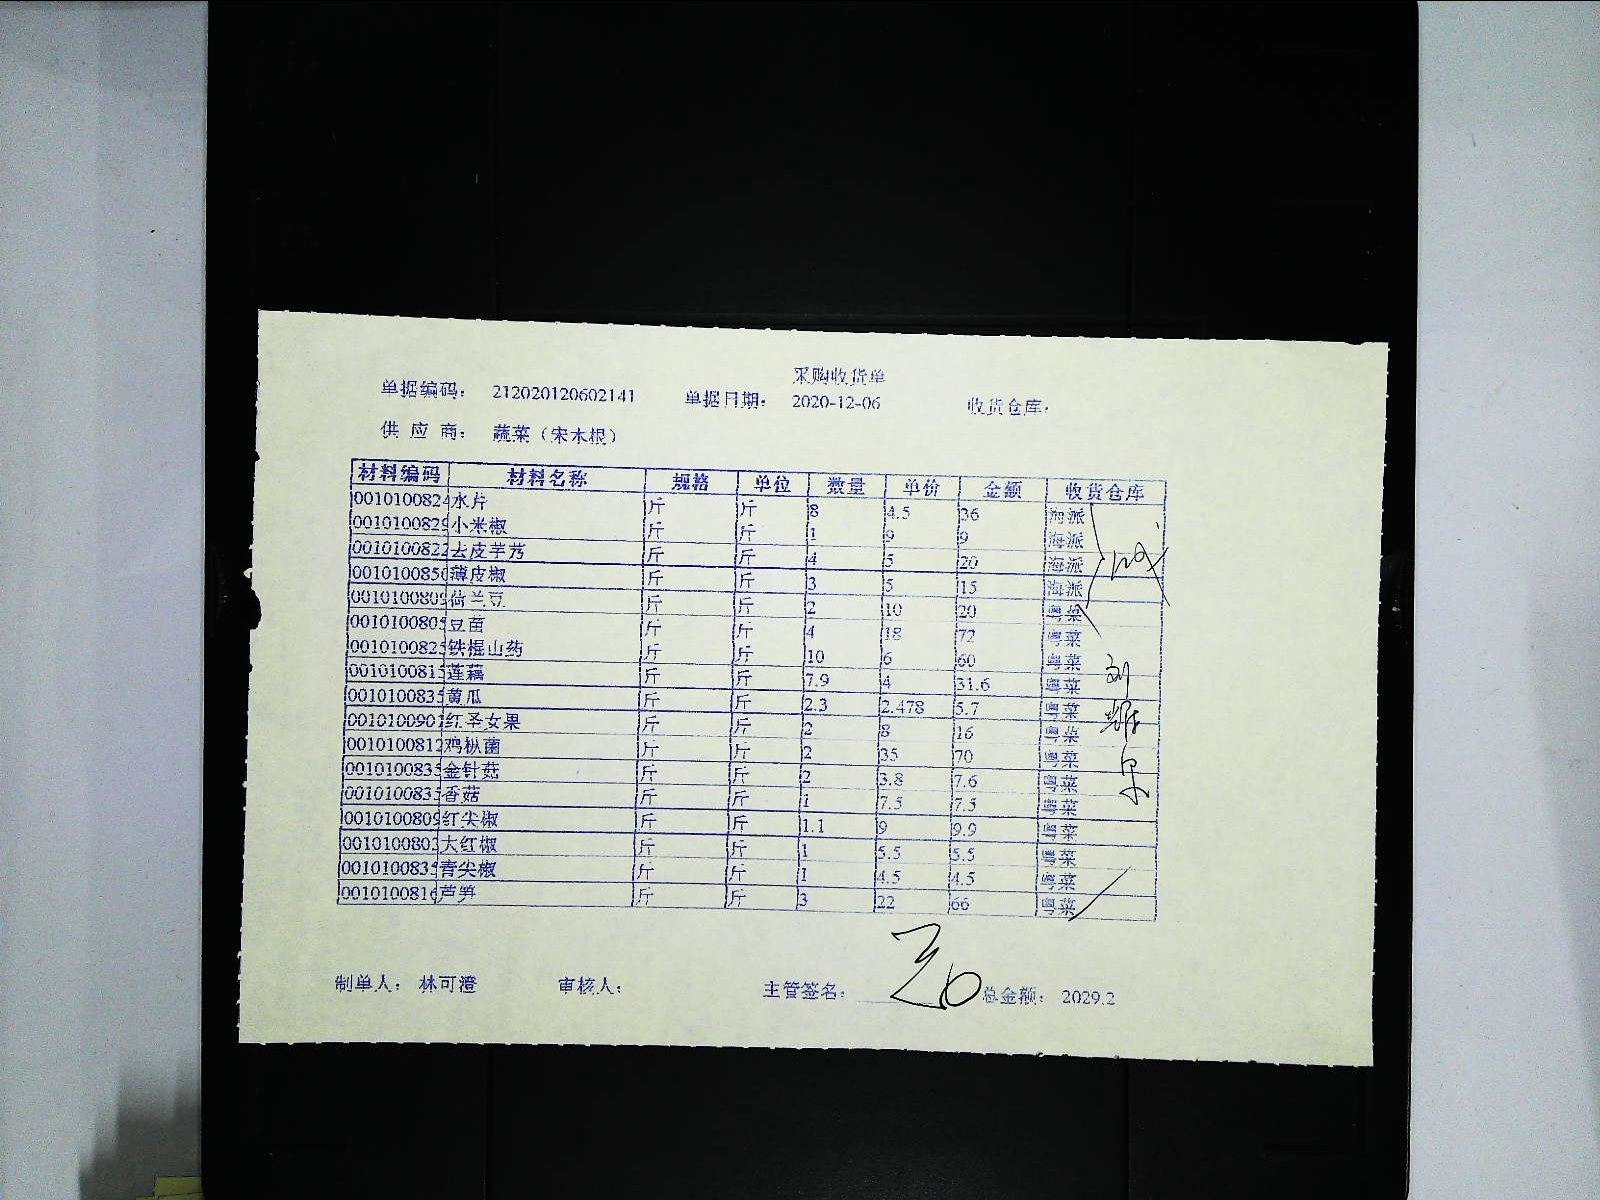 采购收货单
单据编码： 212020120602141 单据日期： 2020-12-06 收货仓库：
供 应 商： 蔬菜（宋木根）
材料编码 材料名称 规格 单位 数量 单价 金额 收货仓库
0010100824 水片 斤 斤 8 4.5 36 海派
0010100829 小米椒 斤 斤 1 9 9 海派
0010100822 去皮芋艿 斤 斤 4 5 20 海派
0010100850 薄皮椒 斤 斤 3 5 15 海派
0010100809 荷兰豆 斤 斤 2 10 20 粤菜
0010100805 豆苗 斤 斤 4 18 72 粤菜
0010100825 铁棍山药 斤 斤 10 6 60 粤菜
0010100815 莲藕 斤 斤 7.9 4 31.6 粤菜
0010100835 黄瓜 斤 斤 2.3 2.478 5.7 粤菜
0010100901 红圣女果 斤 斤 2 8 16 粤菜
0010100812 鸡枞菌 斤 斤 2 35 70 粤菜
0010100835 金针菇 斤 斤 2 3.8 7.6 粤菜
0010100835 香菇 斤 斤 1 7.5 7.5 粤菜
0010100809 红尖椒 斤 斤 1.1 9 9.9 粤菜
0010100802 大红椒 斤 斤 1 5.5 5.5 粤菜
0010100835 青尖椒 斤 斤 1 4.5 4.5 粤菜
0010100816 芦笋 斤 斤 3 22 66 粤菜
制单人： 林可澄 审核人： 主管签名： 总金额： 2029.2